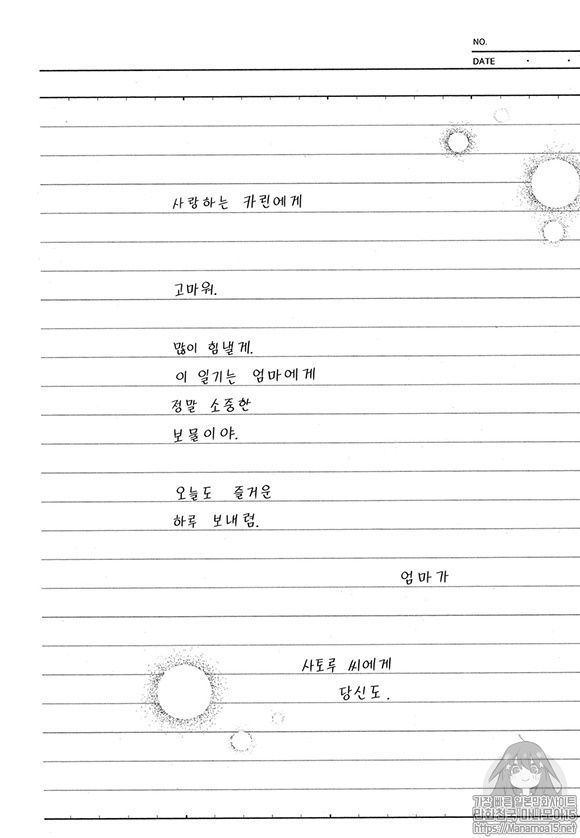 NO.
DATE
사랑하는 카린에게
고마워.
많이 힘낼게.
이 일기는 엄마에게
정말 소중한
보물이야.
오늘도 즐거운
하루 보내렴.
엄마가
사토루 씨에게
당신도.
가장빠른일본만화사이트
만화천국 마나모아15
https://Manamoa15.net/